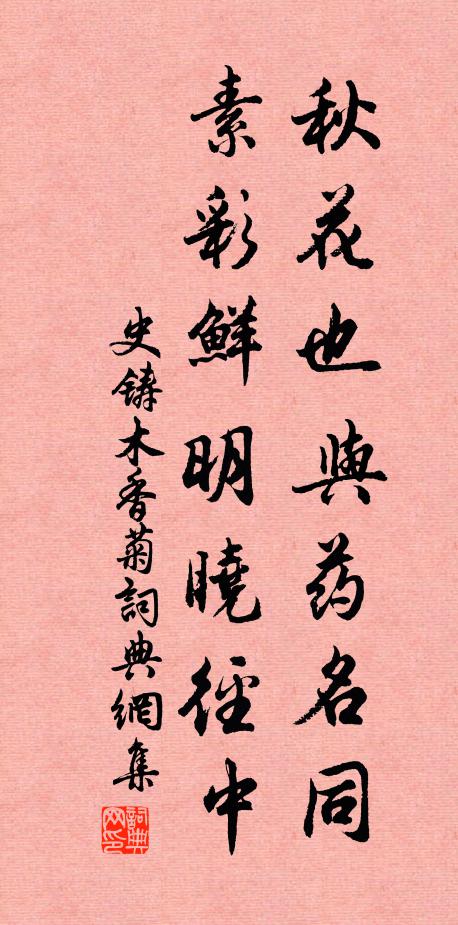 秋花也與药名同
素彩鮮明曉徑中
史鑄木香菊詞典網集
詞典网印